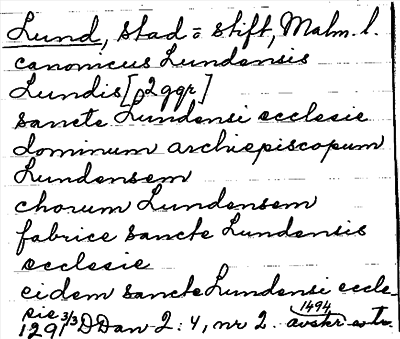 Lund, stad = stift, Malm. l.
canonicus Lundensis
Lundis [2 ggr]
sancte Lundensi ecclesie
dominum archiepiscopum
Lundensem
chorum Lundensem
fabrice sancte Lundensis
ecclesie
eidem sancte Lundensi eccle-
sie
1291 3/3 DDan 2:4, nr 2. avskr 1494